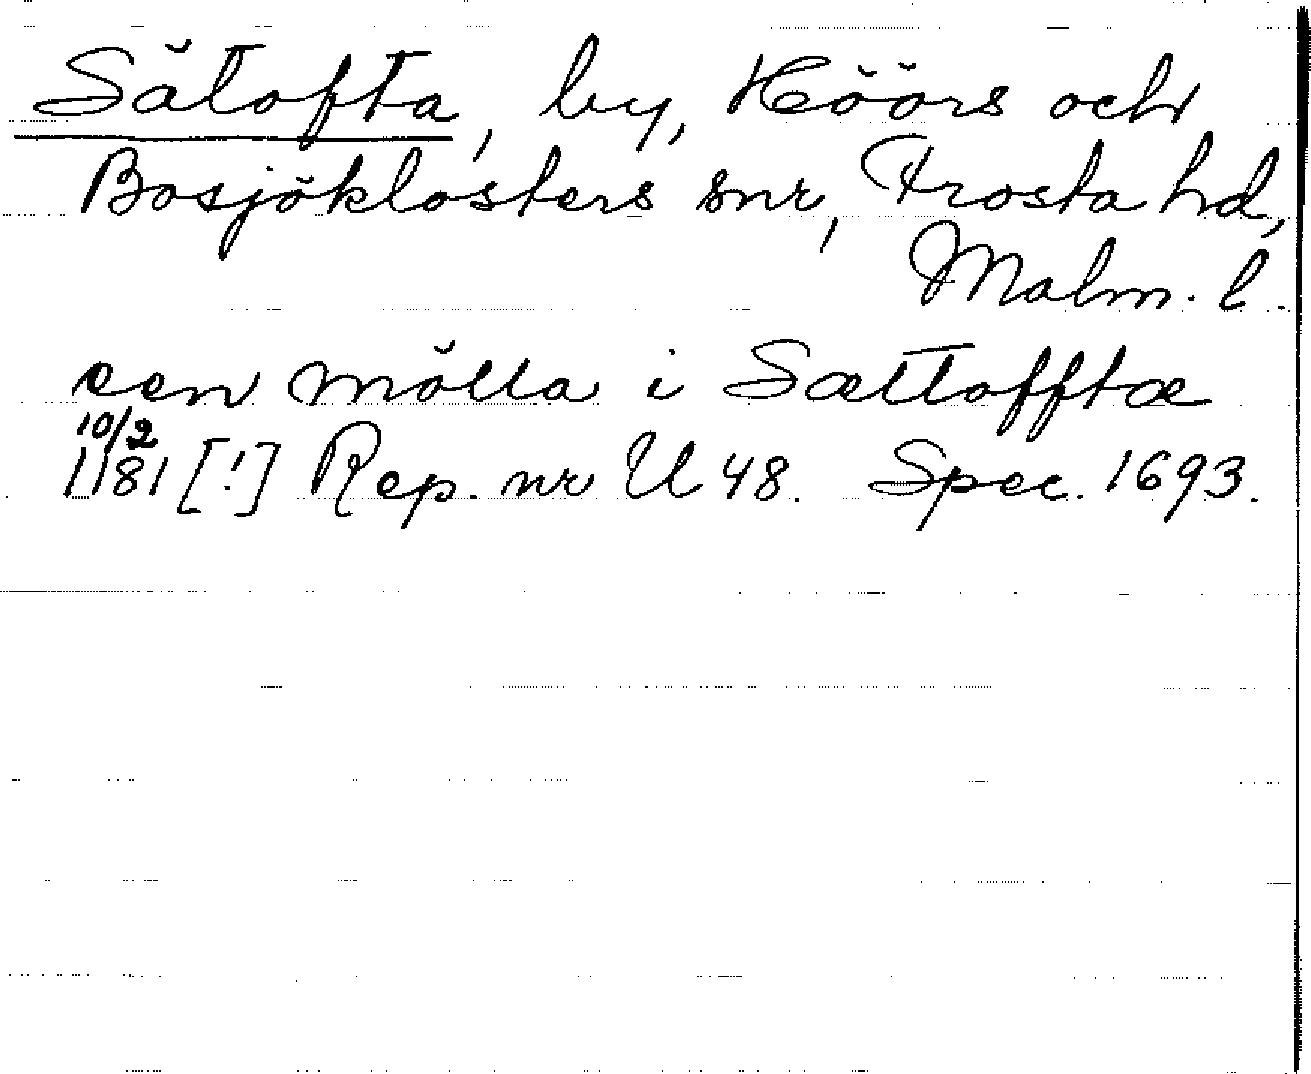 Sätofta, by, Höörs och
Bosjöklosters snr, Frosta hd,
Malm. l.
een mölla i Sættofftæ
10/2
1181 [!] Rep. nr U 48. Spec. 1693.